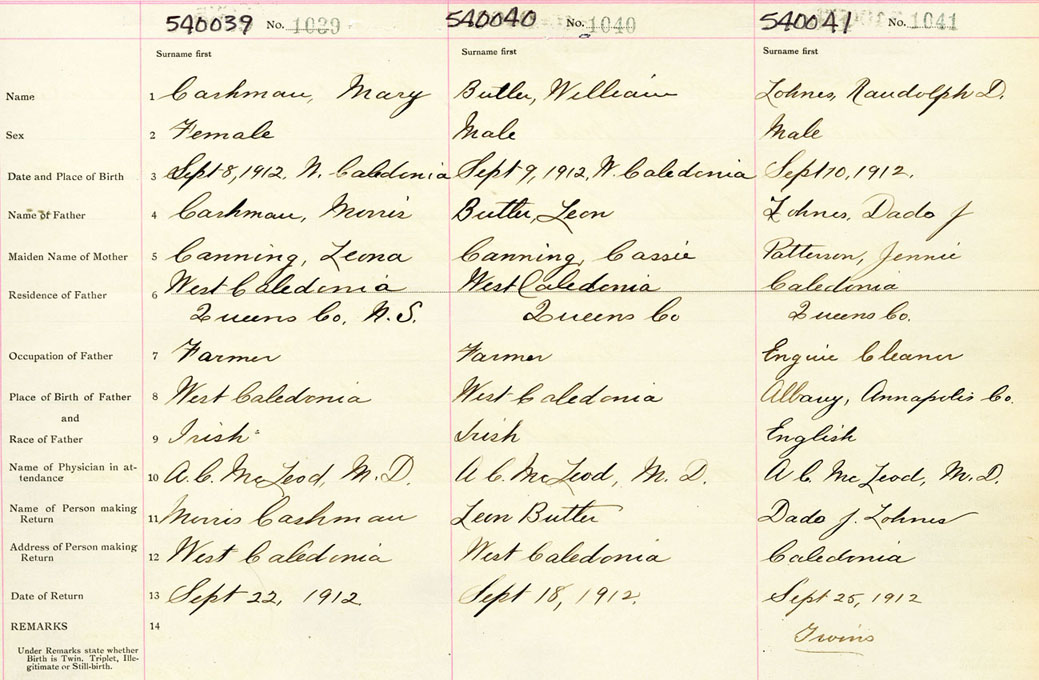 540039 No. 1039 540040 No. 1040 540041 No. 1041
Surname first Surname first Surname first
Name 1 Cashman, Mary Butler, William Zohnes, Randolph D.
Sex 2 Female Male Male
Date and Place of Birth 3 Sept 8, 1912, W. Caledonia Sept 9, 1912, W. Caledonia Sept 10, 1912.
Name of Father 4 Cashman, Morris Butler, Leon Zohnes, Dado J
Maiden Name of Mother 5 Canning, Leona Canning, Cassie Patterson, Jennie
Residence of Father 6 West Caledonia West Caledonia Caledonia
Queens Co, N.S. Queens Co Queens Co.
Occupation of Father 7 Farmer Farmer Engine Cleaner
Place of Birth of Father 8 West Caledonia West Caledonia Albany, Annapolis Co.
and
Race of Father 9 Irish Irish English
Name of Physician in at-
tendance 10 A. C. McLeod, M. D. A C. McLeod, M. D. A C. McLeod, M. D.
Name of Person making
Return 11 Morris Cashman Leon Butler Dado J. Zohnes
Address of Person making
Return 12 West Caledonia West Caledonia Caledonia
Date of Return 13 Sept 22, 1912 Sept 18, 1912. Sept 25, 1912
REMARKS 14 Twins
Under Remarks state whether
Birth is Twin. Triplet, Ille-
gitimate or Still-birth.